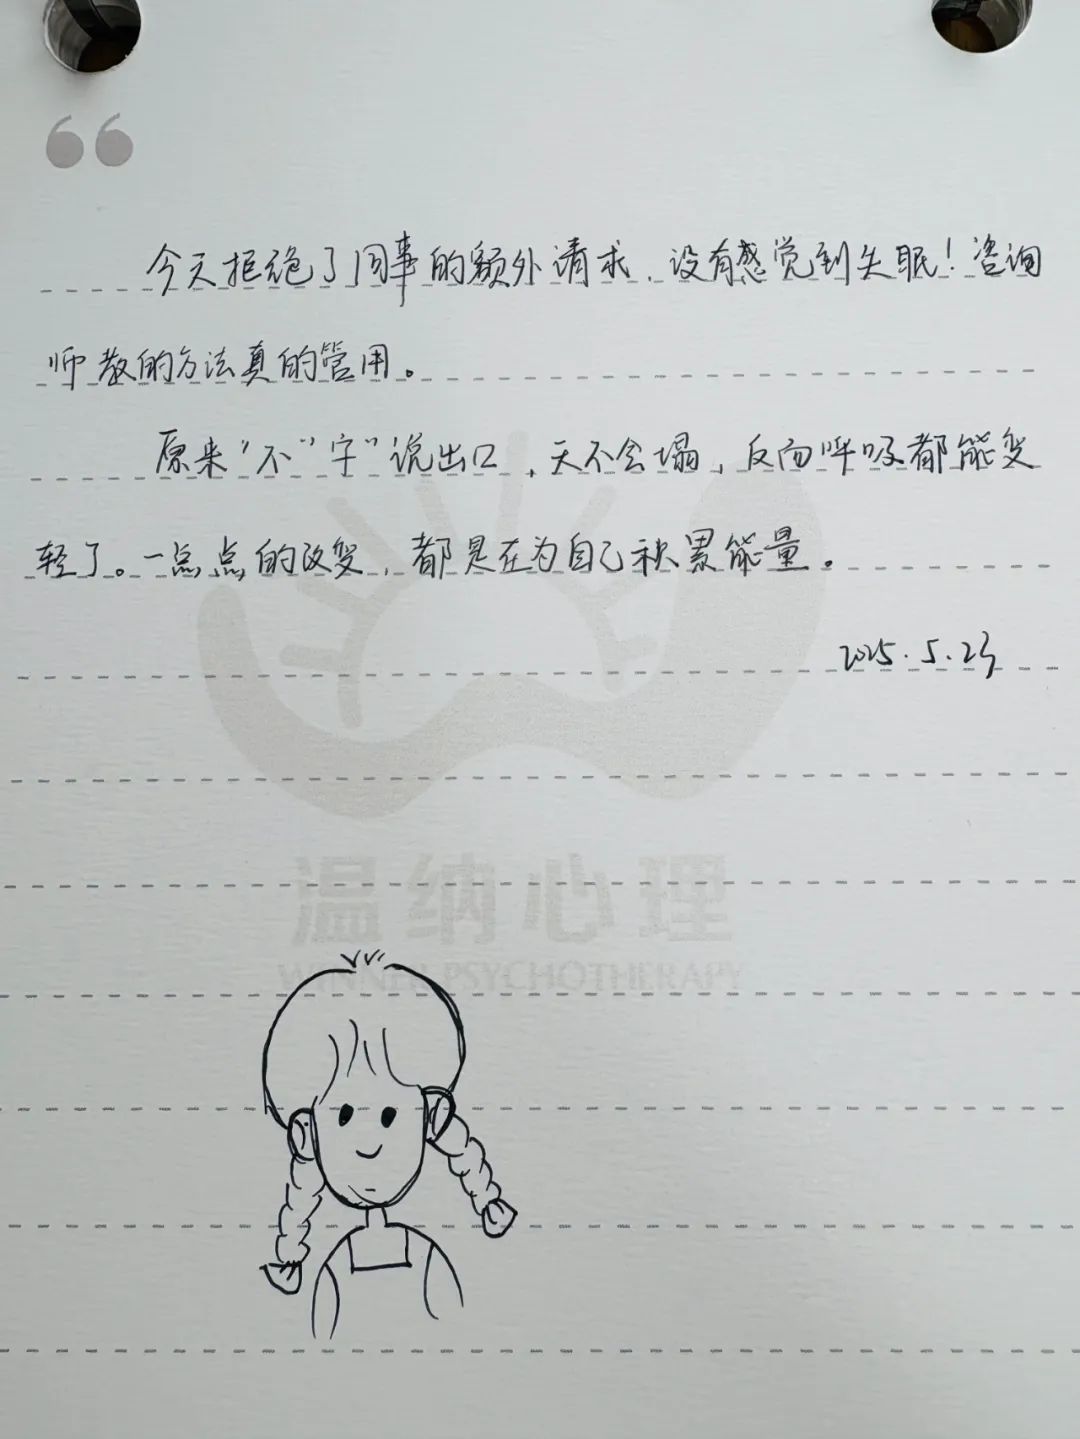 今天拒绝了同事的额外请求，没有感觉到失眠！咨询
师教的方法真的管用。
原来“不”字”说出口，天不会塌，反而呼吸都能变
轻了。一点点的改变，都是在为自己积累能量。
2025.5.23
温纳心理
WINNER PSYCHOTHERAPY